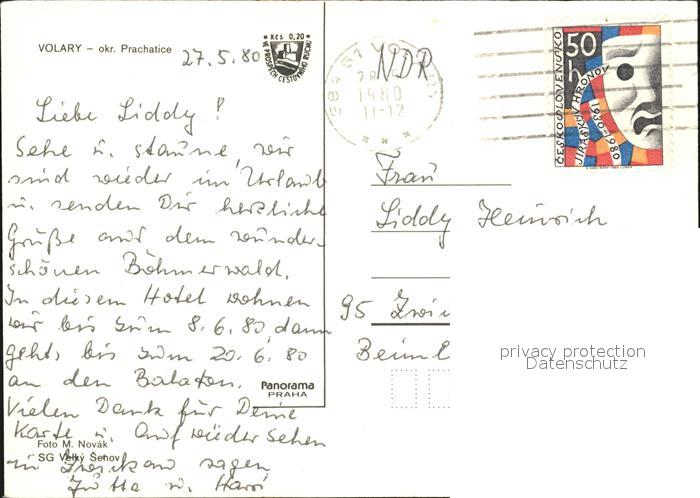 VOLARY – okr. Prachatice
27.5.80
Kčs 0,20
VE PROSPĚCH CESTOVNÍHO RUCHU
Liebe Liddy!
Sehe u. staune, wir
sind wieder im Urlaub
u. senden Dir herzliche
Grüße aus dem wunder-
schönen Böhmerwald.
In diesem Hotel wohnen
wir bis zum 8.6.80, dann
geht's bis zum 20.6.80
an den Balaton.
Vielen Dank für Deine
Karte u. Auf wiedersehen
in Zwickau sagen
Jutta u. Hans
Foto M. Novák
SG Velký Šenov
Panorama
PRAHA
384 51 VOLARY
1980
11-12
NDR
ČESKOSLOVENSKO
50 h
JIRÁSKŮV HRONOV
1930-1980
Frau
Liddy Heinrich
95 Zwi
privacy protection
Datenschutz